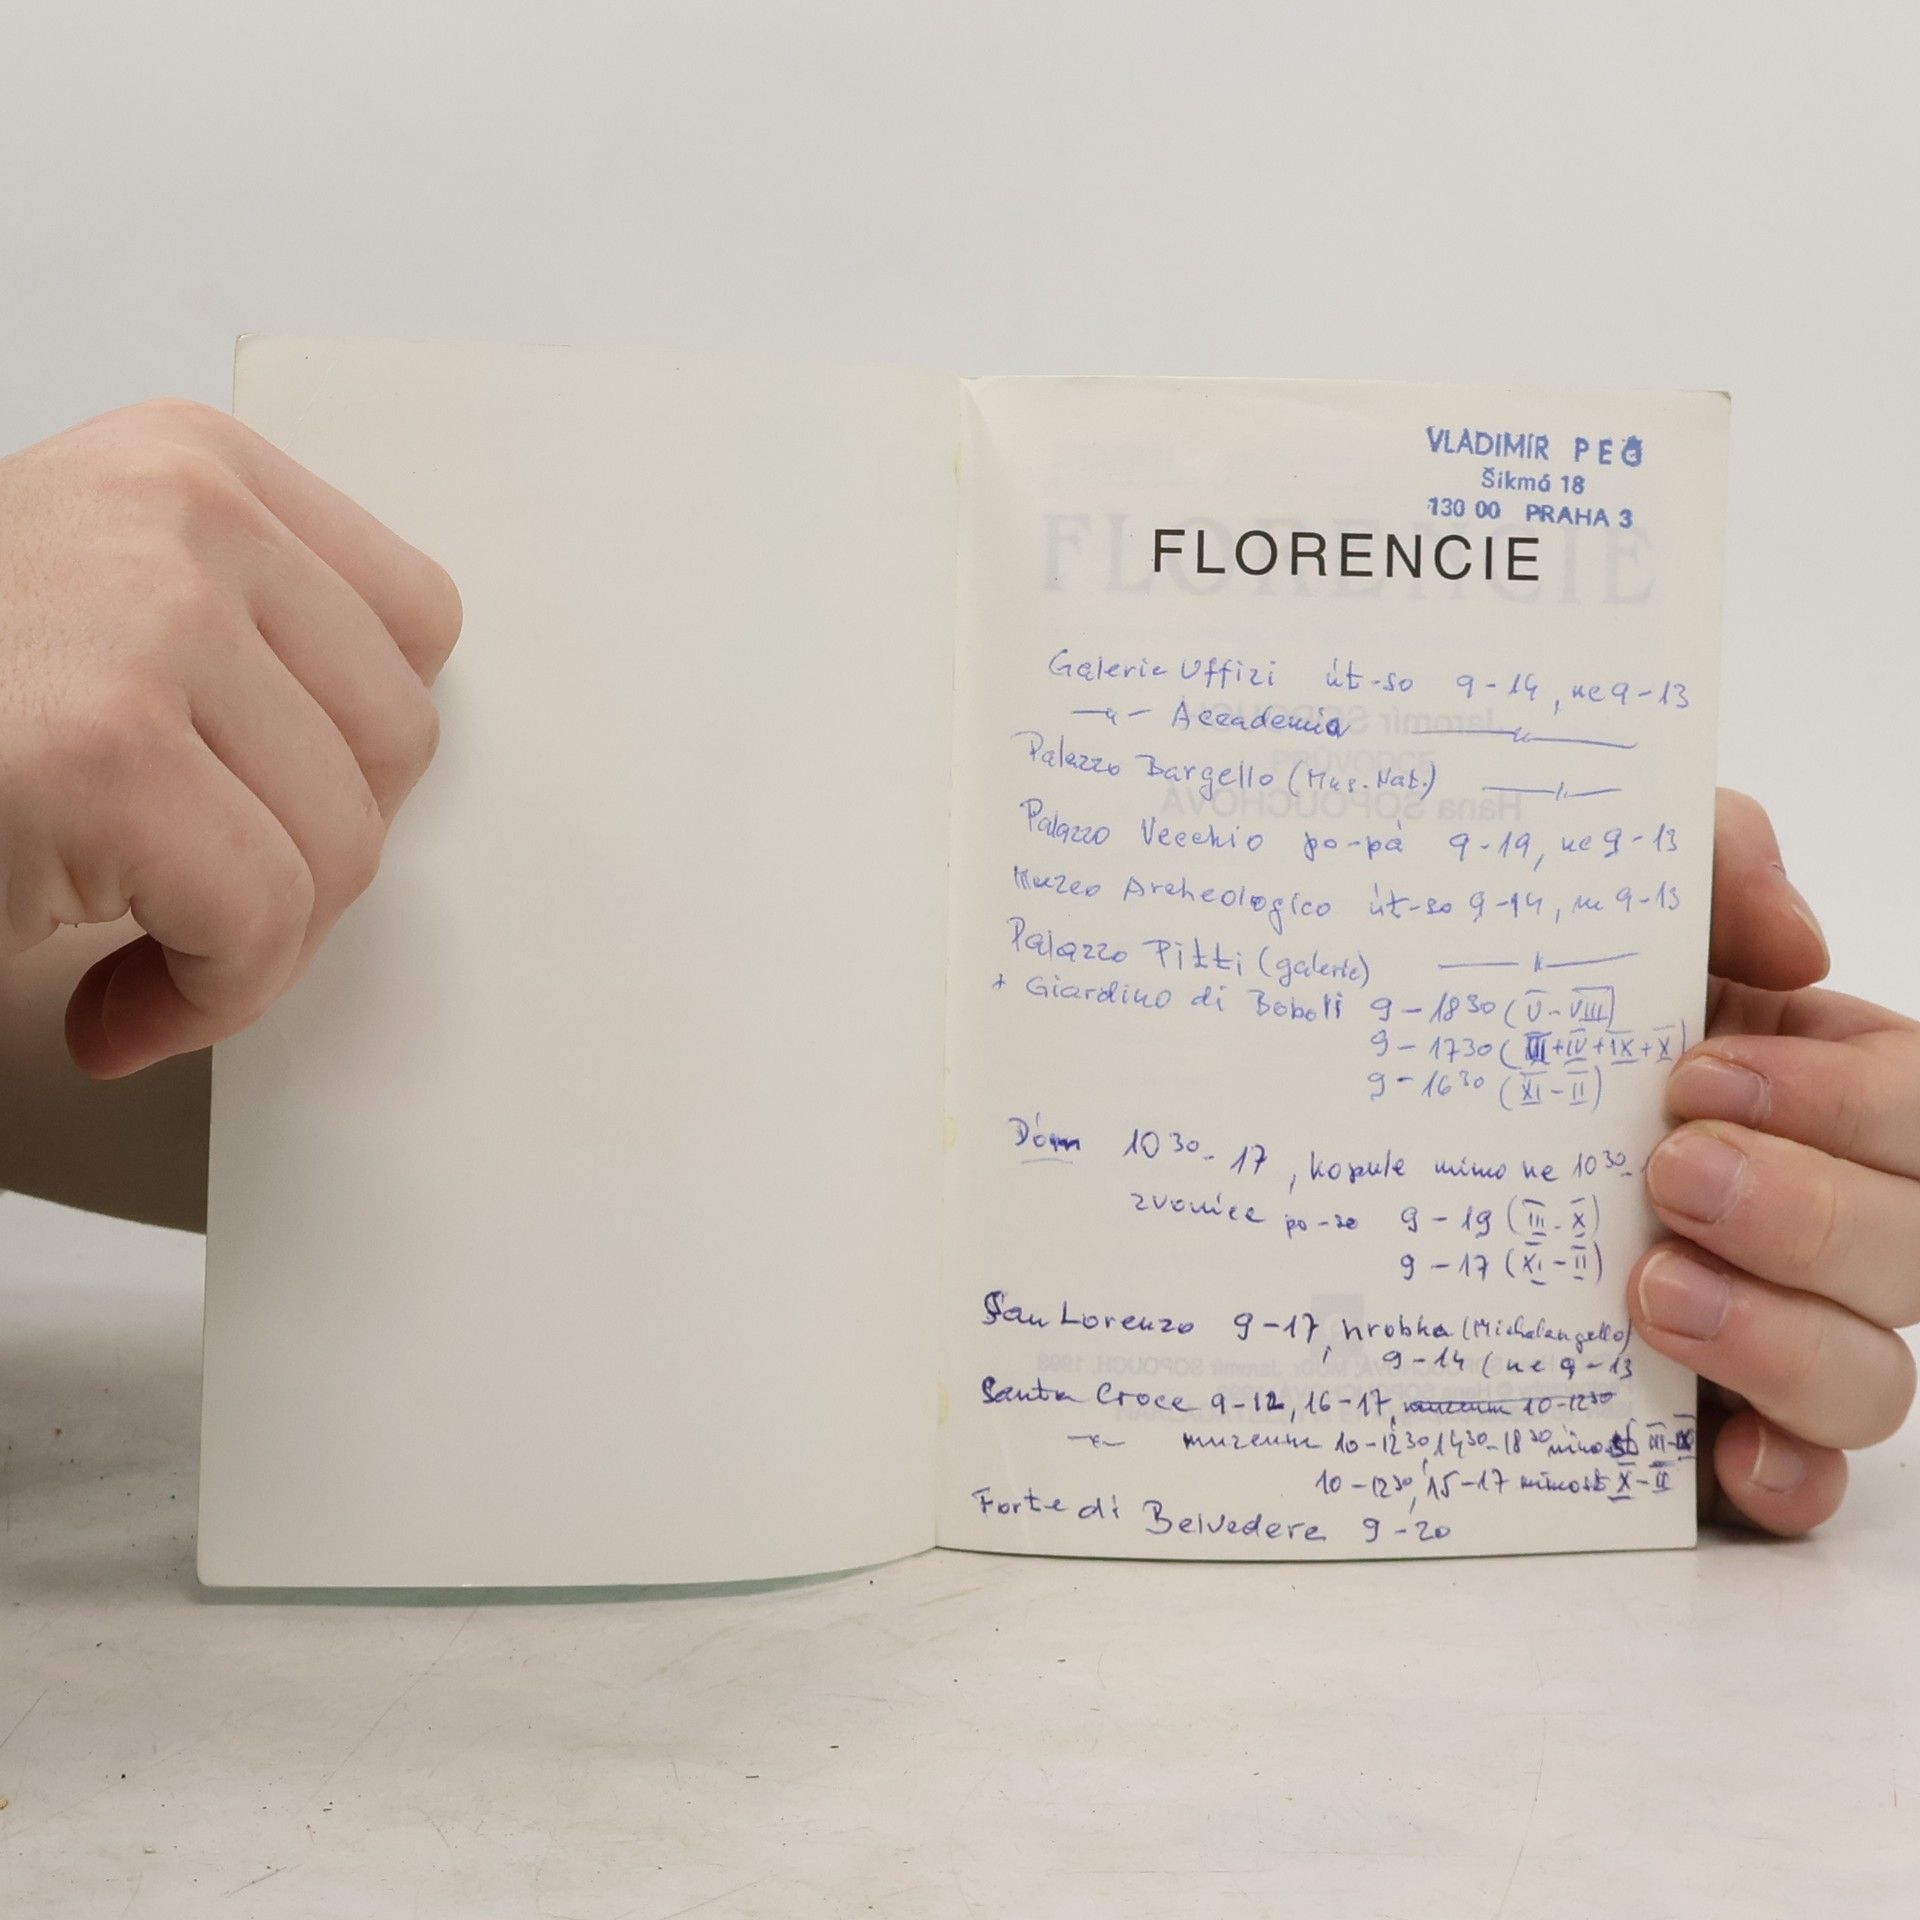 VLADIMÍR PEČ
Šikmá 18
130 00 PRAHA 3
FLORENCIE
Galerie Uffizi út-so 9-14, ne 9-13
-"- Accademia -"-
Palazzo Bargello (Mus. Nat.) -"-
Palazzo Vecchio po-pá 9-19, ne 9-13
Muzeo Archeologico út-so 9-14, ne 9-13
Palazzo Pitti (galerie) -"-
+ Giardino di Boboli 9-18 30 (V-VIII)
9-17 30 (III+IV+IX+X)
9-16 30 (XI-II)
Dóm 10 30-17, kopule mimo ne 10 30-
zvonice po-so 9-19 (III-X)
9-17 (XI-II)
San Lorenzo 9-17, hrobka (Michelangello)
9-14 (ne 9-13
Santa Croce 9-12, 16-17, muzeum 10-12 30
-"- muzeum 10-12 30, 14 30-18 30 mimo st III-IX
10-12 30, 15-17 mimo st X-II
Forte di Belvedere 9-20
Jaromír SOPOUCH
PRŮVODCE
Hana SOPOUCHOVÁ